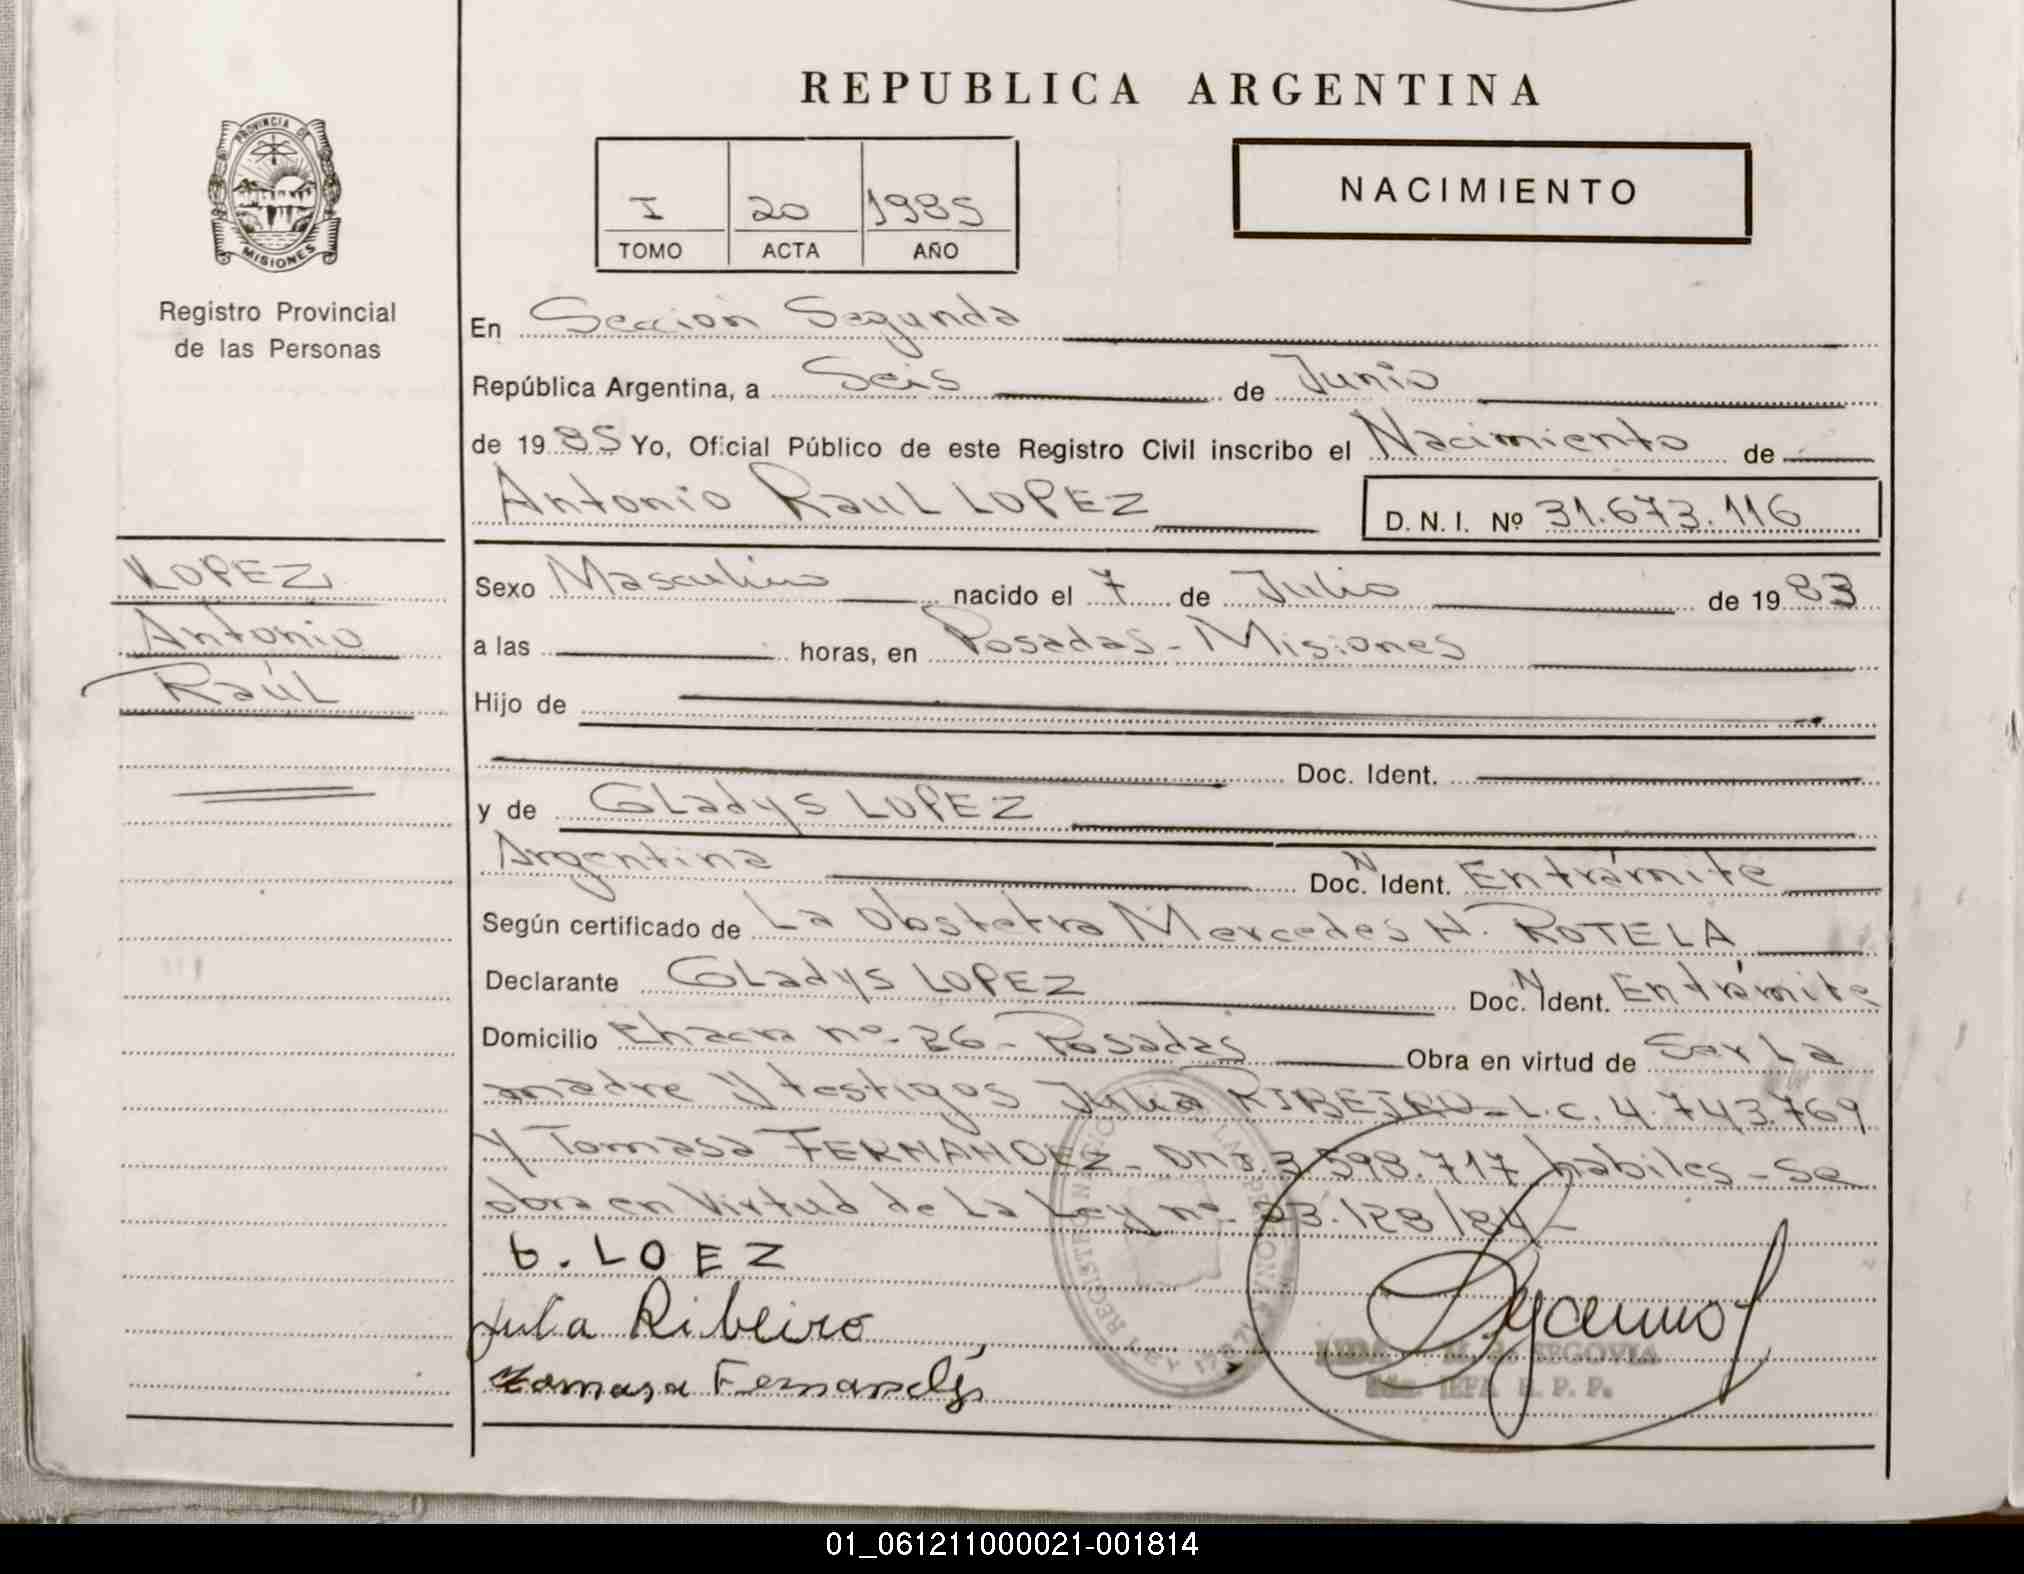 REPUBLICA ARGENTINA
PROVINCIA DE
MISIONES
Registro Provincial
de las Personas
I 20 1985
TOMO ACTA AÑO
NACIMIENTO
En Sección Segunda
República Argentina, a Seis de Junio
de 1985 Yo, Oficial Público de este Registro Civil inscribo el Nacimiento de
Antonio Raul LOPEZ D. N. I. Nº 31.673.116
LOPEZ
Antonio
Raúl
Sexo Masculino nacido el 7 de Julio de 1983
a las horas, en Posadas - Misiones
Hijo de
Doc. Ident.
y de GLadys LOPEZ
Argentina Doc. N Ident. Entrámite
Según certificado de La Obstetra Mercedes H. ROTELA
Declarante GLadys LOPEZ Doc. N Ident. Entrámite
Domicilio Chacra nº 26 - Posadas Obra en virtud de Ser La
madre y testigos Julia RIBEIRO - L.C. 4.743.769
y Tomasa FERNANDEZ - DNI. 3.598.717 habiles - Se
obra en Virtud de La Ley nº 23.128/84 -
G. LOEZ
Julia Ribeiro
Tomasa Fernandez
M. SEGOVIA
JEFA R. P. P.
01_061211000021-001814